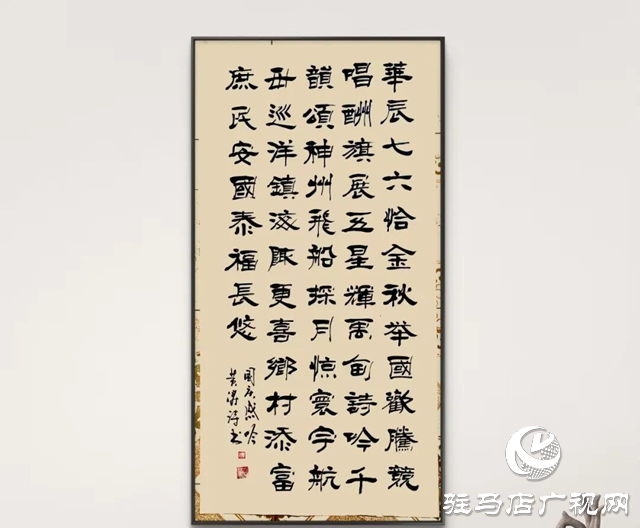 華辰七六恰金秋举國歡騰競
唱酬旗展五星輝禹甸詩吟千
韻頌神州飛船探月惊寰宇航
母巡洋鎮海陬更喜鄉村添富
庶民安國泰福長悠
国庆感吟
驻马店广视网